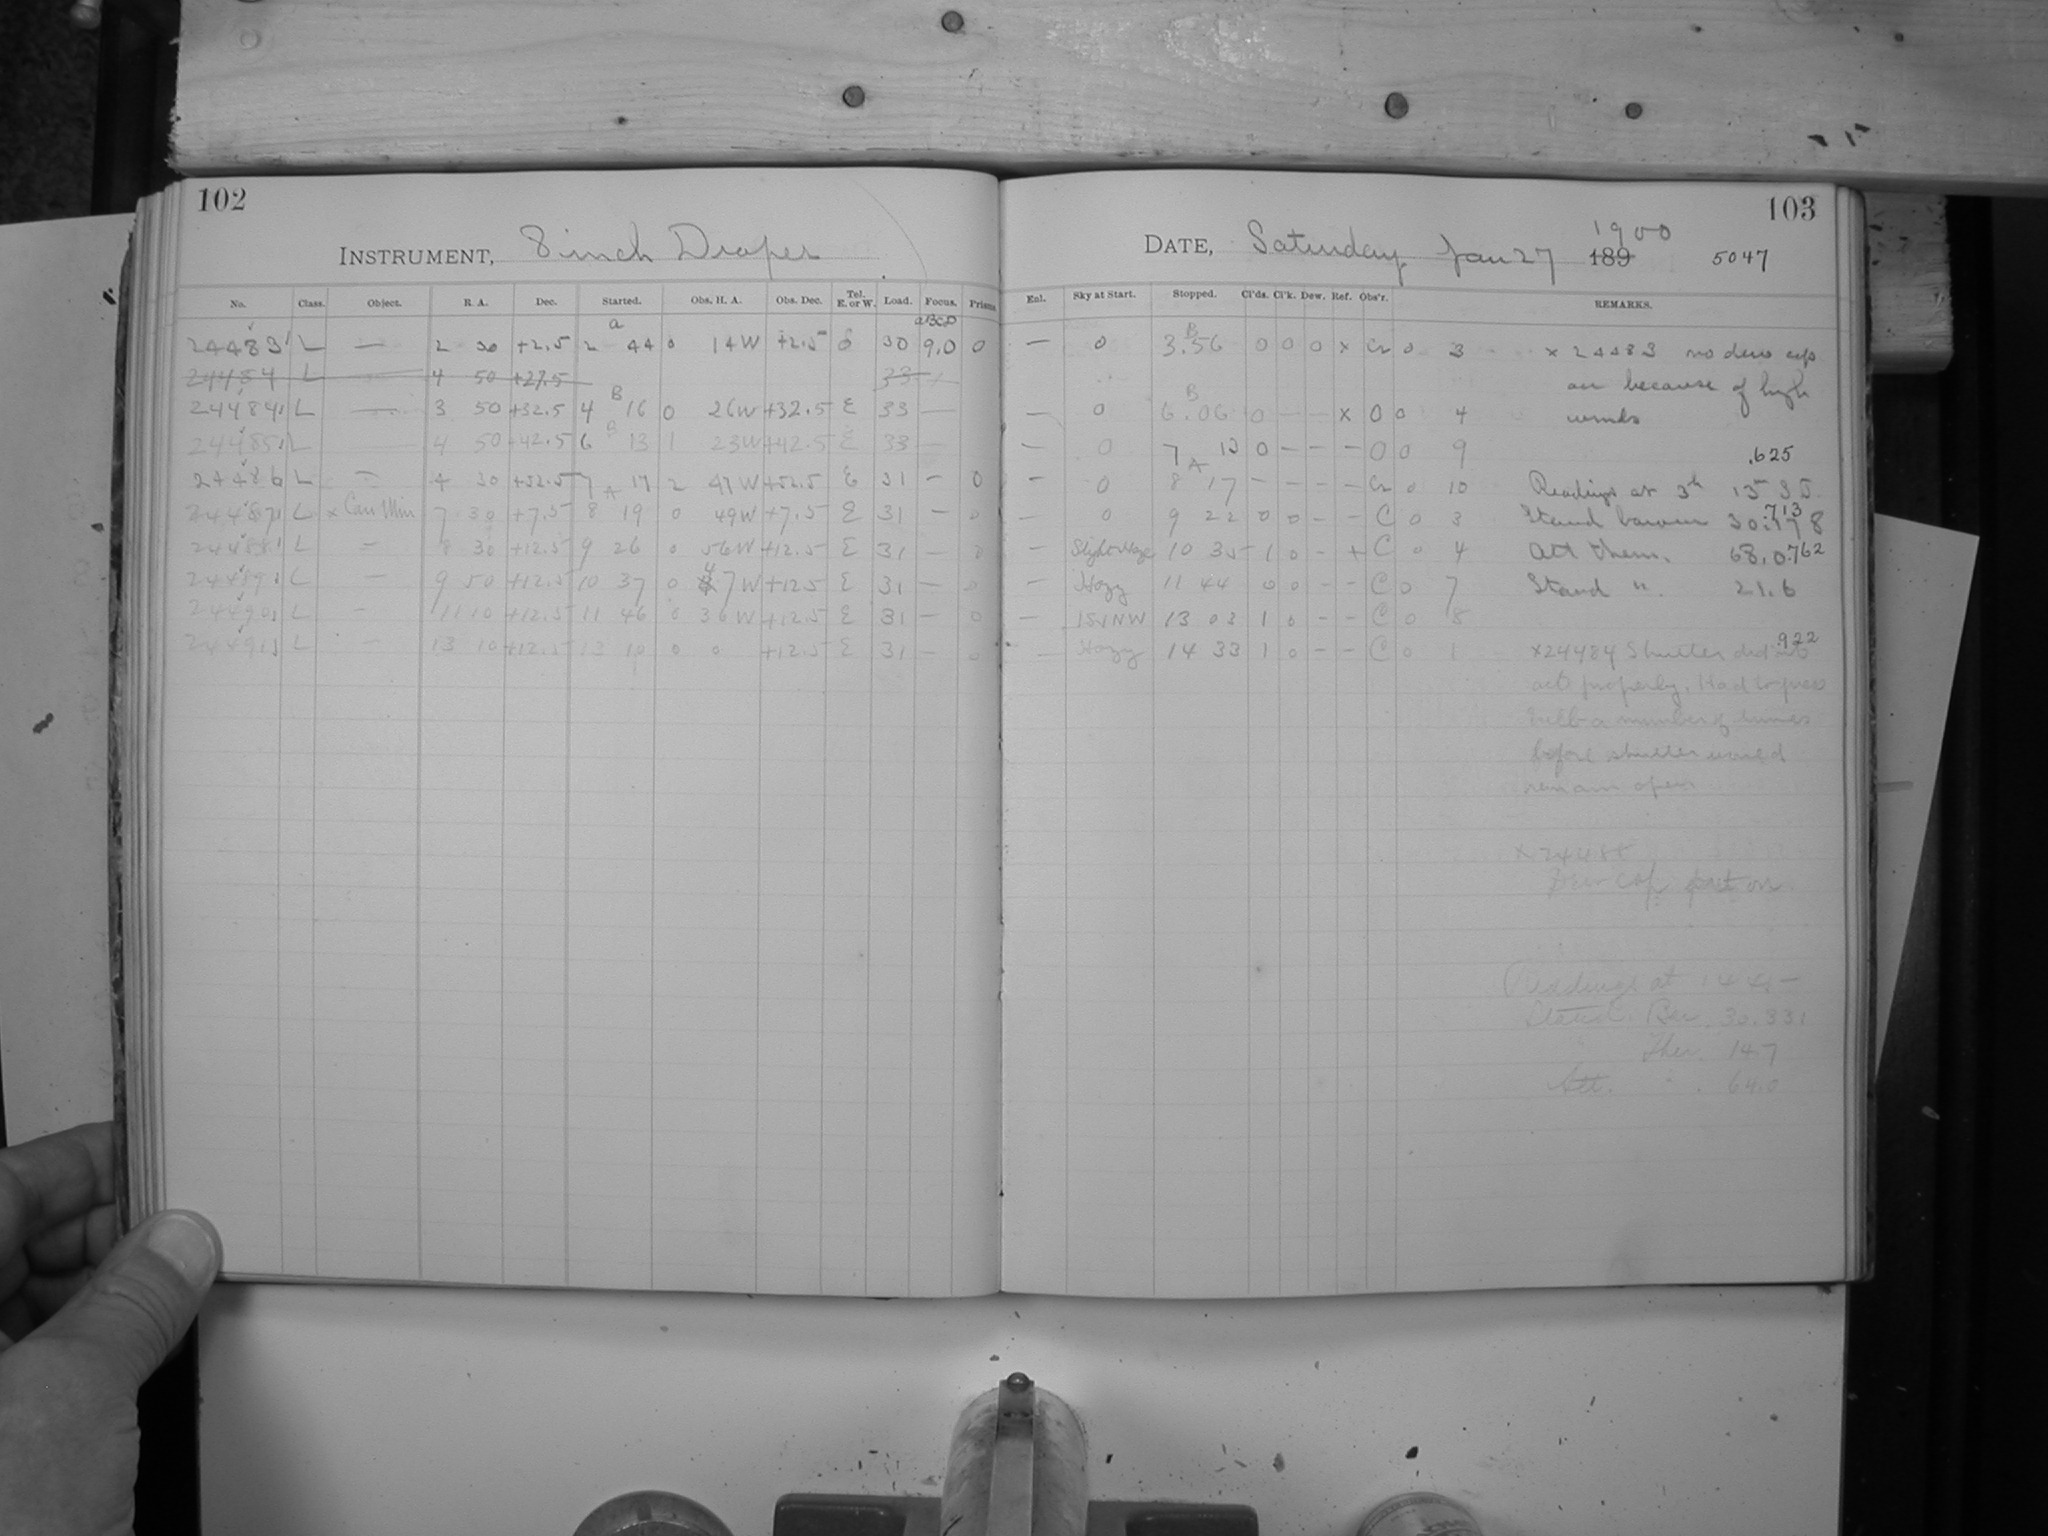 102
INSTRUMENT, 8 inch Draper
No. Class. Object. R. A. Dec. Started. Obs. H. A. Obs. Dec. Tel. E. or W. Load. Focus. Prisms
24483 L — 2 30 +2.5 2 44 0 14W +2.5 30 9.0 0
24484 L — 4 50 +27.5 33
24484 L — 3 50 +32.5 4 B 16 0 26W +32.5 E 33 —
24485 L — 4 50 +42.5 6 B 13 1 23W +42.5 E 33 —
24486 L — 4 30 +52.5 7 A 17 2 47W +52.5 E 31 — 0
24487 L x Can Min 7 30 +7.5 8 19 0 49W +7.5 E 31 — 0
24488 L — 8 30 +12.5 9 26 0 56W +12.5 E 31 — 0
24489 L — 9 50 +12.5 10 37 0 47W +12.5 E 31 — 0
24490 L — 11 10 +12.5 11 46 0 36W +12.5 E 31 — 0
24491 L — 13 10 +12.5 13 10 0 0 +12.5 E 31 — 0
103
DATE, Saturday Jan 27 189 1900 5047
Enl. Sky at Start. Stopped. Cl'ds. Cl'k. Dew. Ref. Obs'r. REMARKS.
— 0 3.56 B 0 0 0 x Cr 0 3 x 24483 no dew cap
on because of high
— 0 6.06 B 0 — — x O 0 4 winds
— 0 7 13 0 — — — O 0 9 .625
— 0 8 A 17 — — — — Cr 0 10 Readings at 3h 15
— 0 9 22 0 0 — — C 0 3 Stand barom 30.178 .713
— Slight Haze 10 35 1 0 — + C 0 4 Att Therm. 68.0 .762
— Hazy 11 44 0 0 — — C 0 7 Stand ". 21.6
— 1S1NW 13 03 1 0 — — C 0 8
— Hazy 14 33 1 0 — — C 0 1 .922
x24484 Shutter did not
act properly. Had to press
bulb a number of times
before shutter would
remain open
Dew cap put on.
Readings at 14
Stand. Bar. 30.331
Ther. 14.7
Att. " 64.0